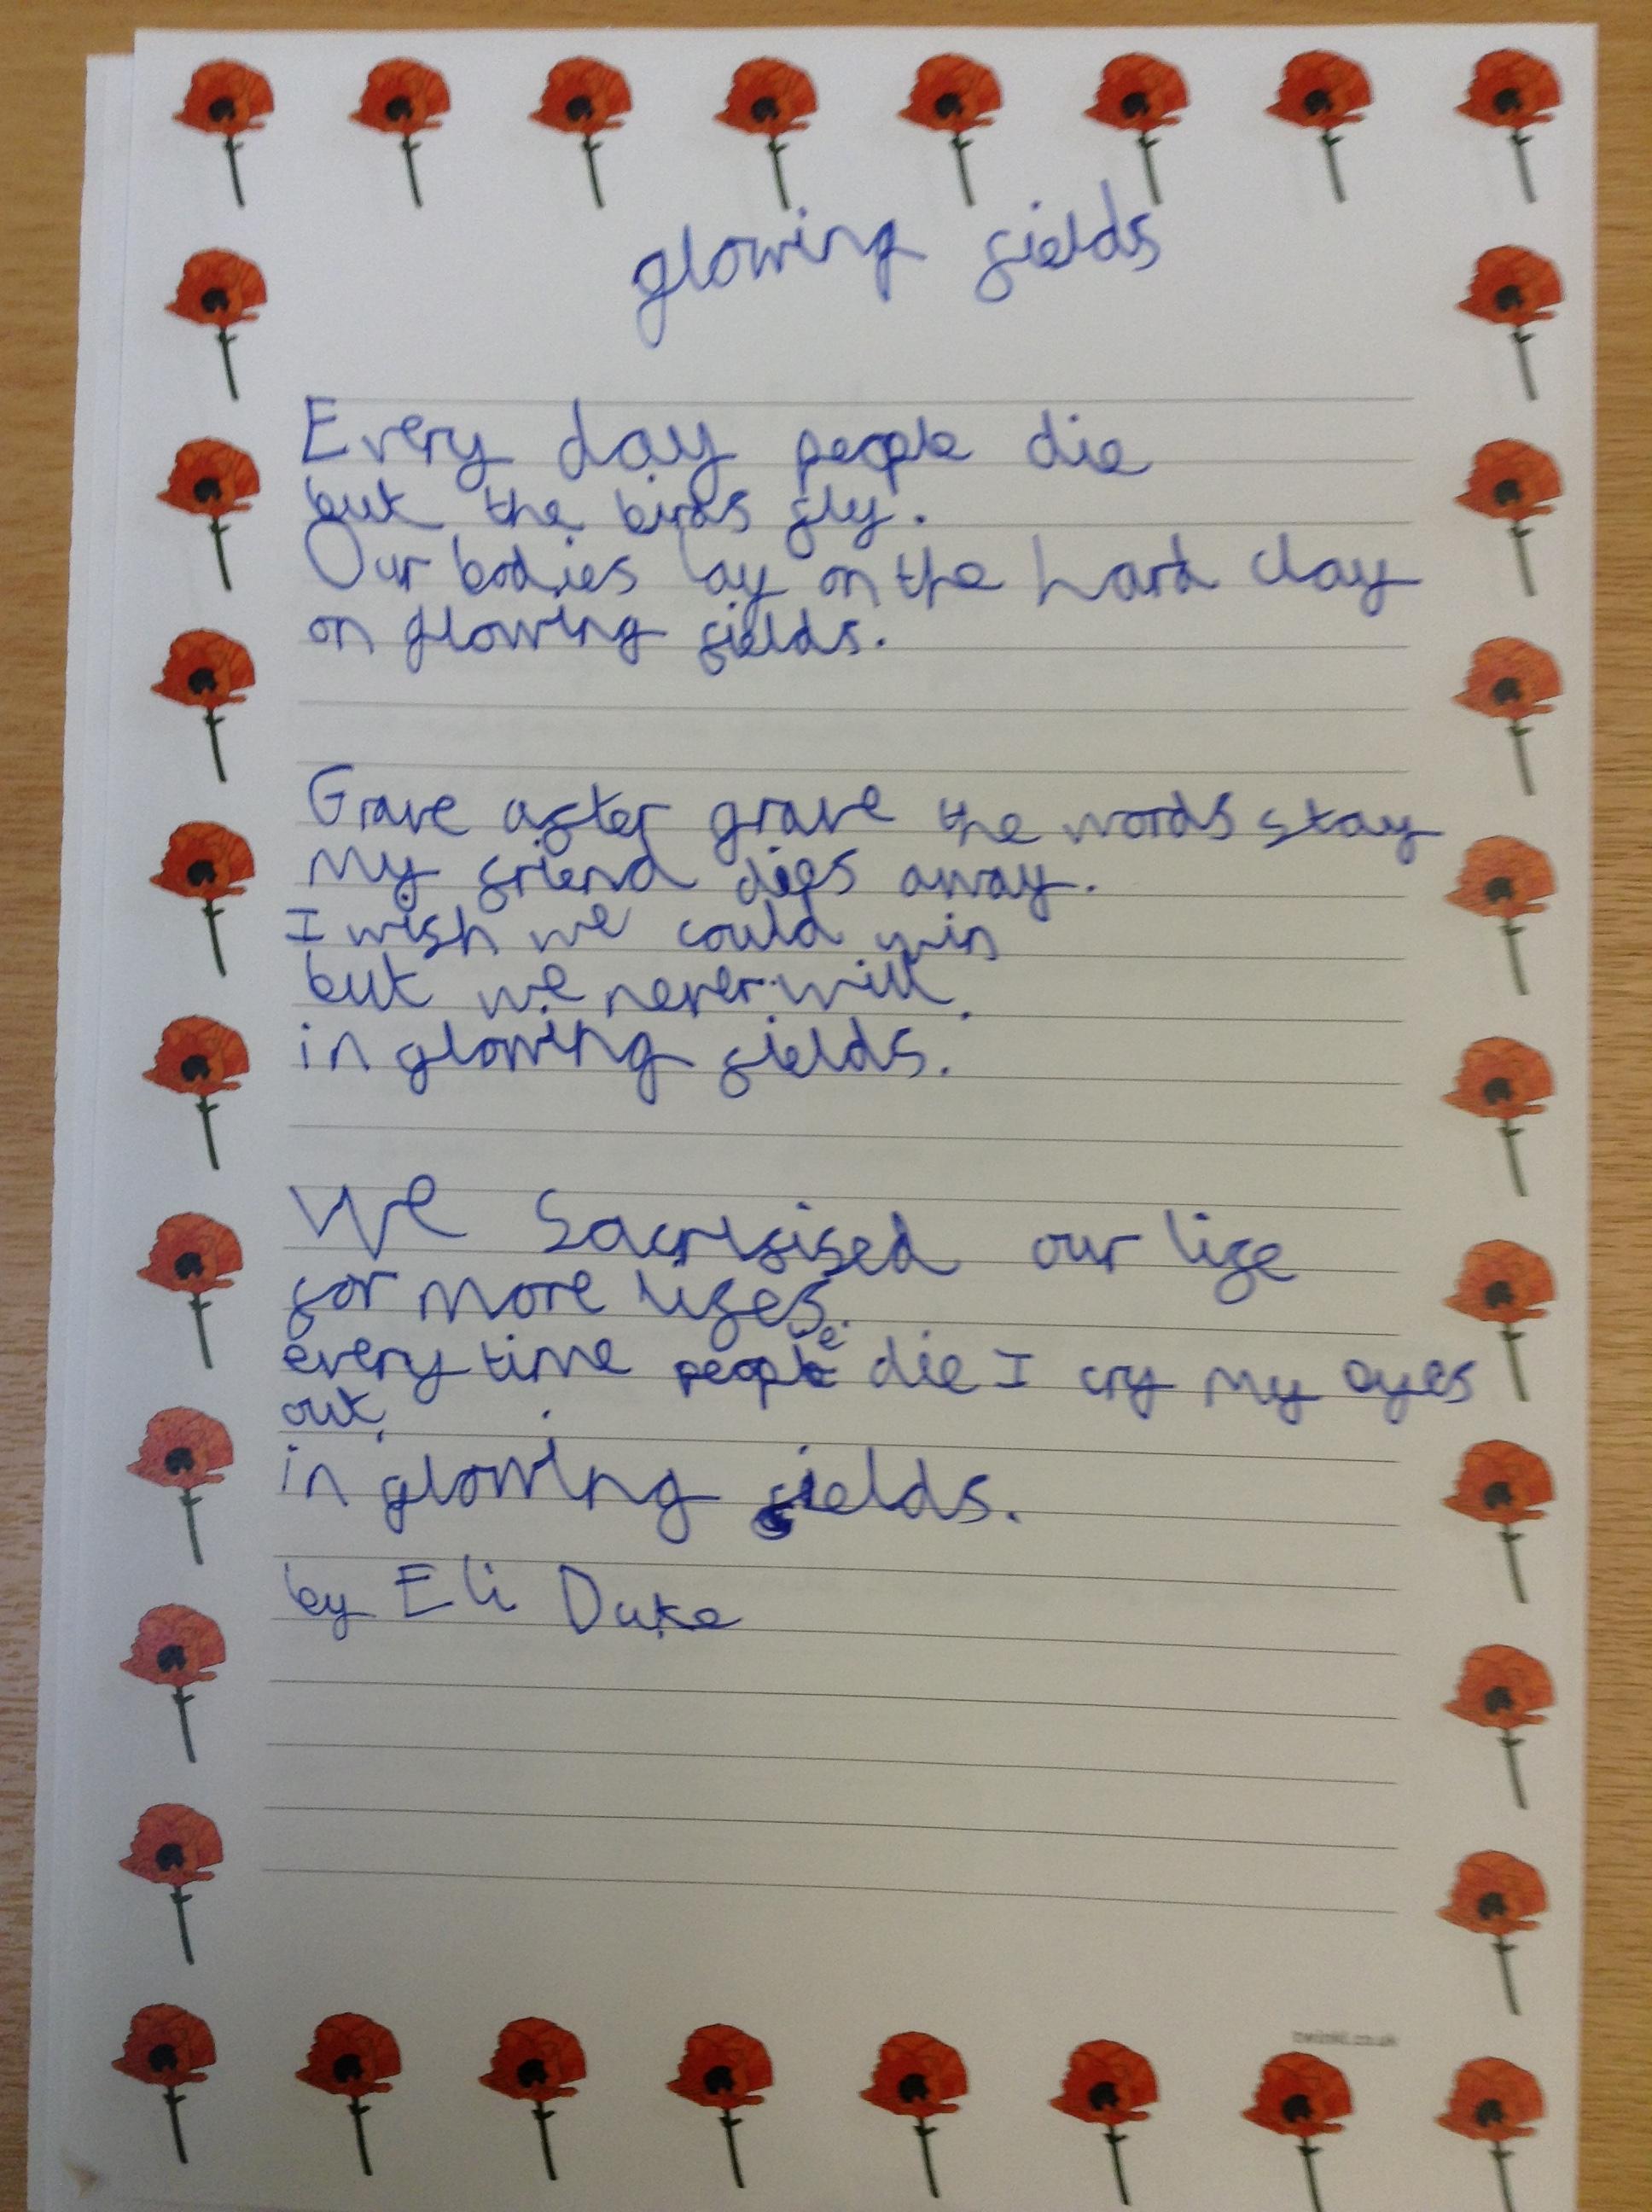 glowing fields
Every day people die
but the birds fly.
Our bodies lay on the hard clay
on glowing fields.
Grave after grave the words stay
My friend dies away.
I wish we could win
but we never will.
in glowing fields.
We Sacrifised our life
for more lifes.
every time people die I cry my eyes
out,
in glowing fields.
by Eli Duke
twinkl.co.uk